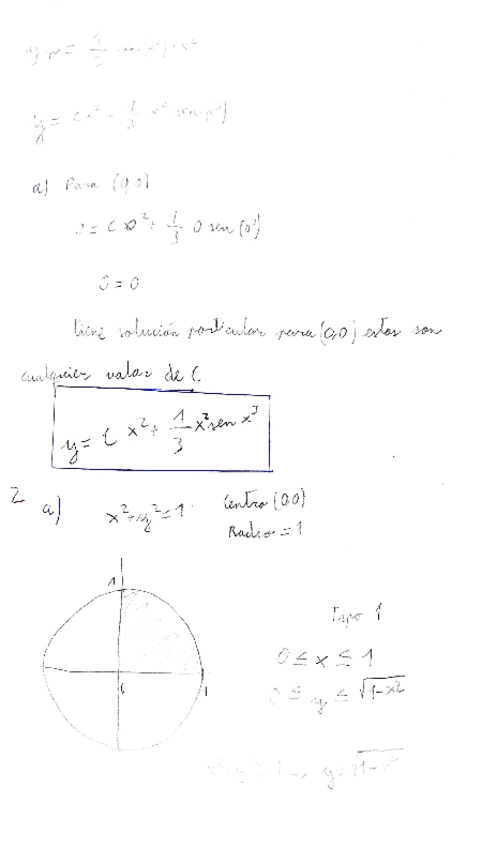 y p = 1/3 sen(x³) · x²
y = Cx² + 1/3 x² sen(x³)
a) Para (0,0)
0 = C 0² + 1/3 0 sen(0³)
0 = 0
tiene solución particular para (0,0) estas son
cualquier valor de C
y = C x² + 1/3 x² sen x³
2 a) x² + y² = 1 Centro (0,0)
Radio = 1
1
1
Tipo 1
0 ≤ x ≤ 1
0 ≤ y ≤ √1-x²
y = √1-x²